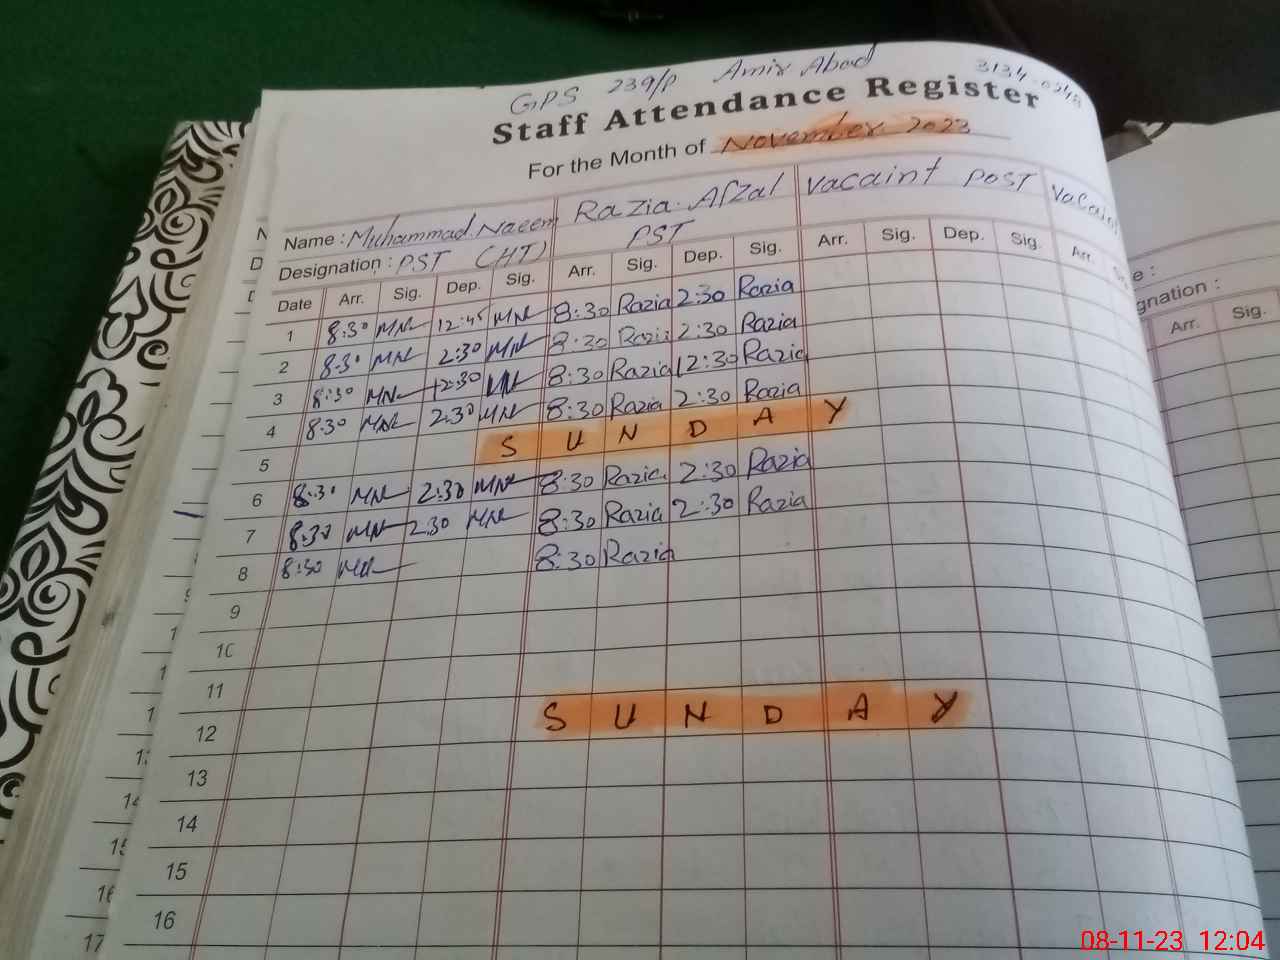 GPS 239/P Amir Abad 3134-0248
Staff Attendance Register
For the Month of November 2023
Name : Muhammad Naeem Razia Afzal Vacaint Post
Designation : PST (HT) PST
Date Arr. Sig. Dep. Sig. Arr. Sig. Dep. Sig. Arr. Sig. Dep. Sig. Arr.
1 8:30 MN 12:45 MN 8:30 Razia 2:30 Razia
2 8:30 MN 2:30 MN 8:30 Razia 2:30 Razia
3 8:30 MN 12:30 MN 8:30 Razia 12:30 Razia
4 8:30 MN 2:30 MN 8:30 Razia 2:30 Razia
5 S U N D A Y
6 8:30 MN 2:30 MN 8:30 Razia 2:30 Razia
7 8:30 MN 2:30 MN 8:30 Razia 2:30 Razia
8 8:30 MN 8:30 Razia
9
10
11
12 S U N D A Y
13
14
15
16
17
gnation :
Arr. Sig.
08-11-23 12:04